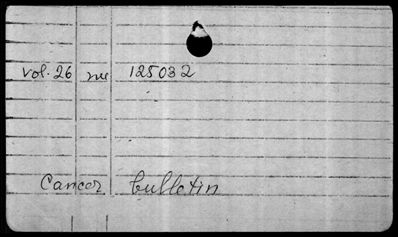 Vol. 26 nu 125032
Cancer bulletin